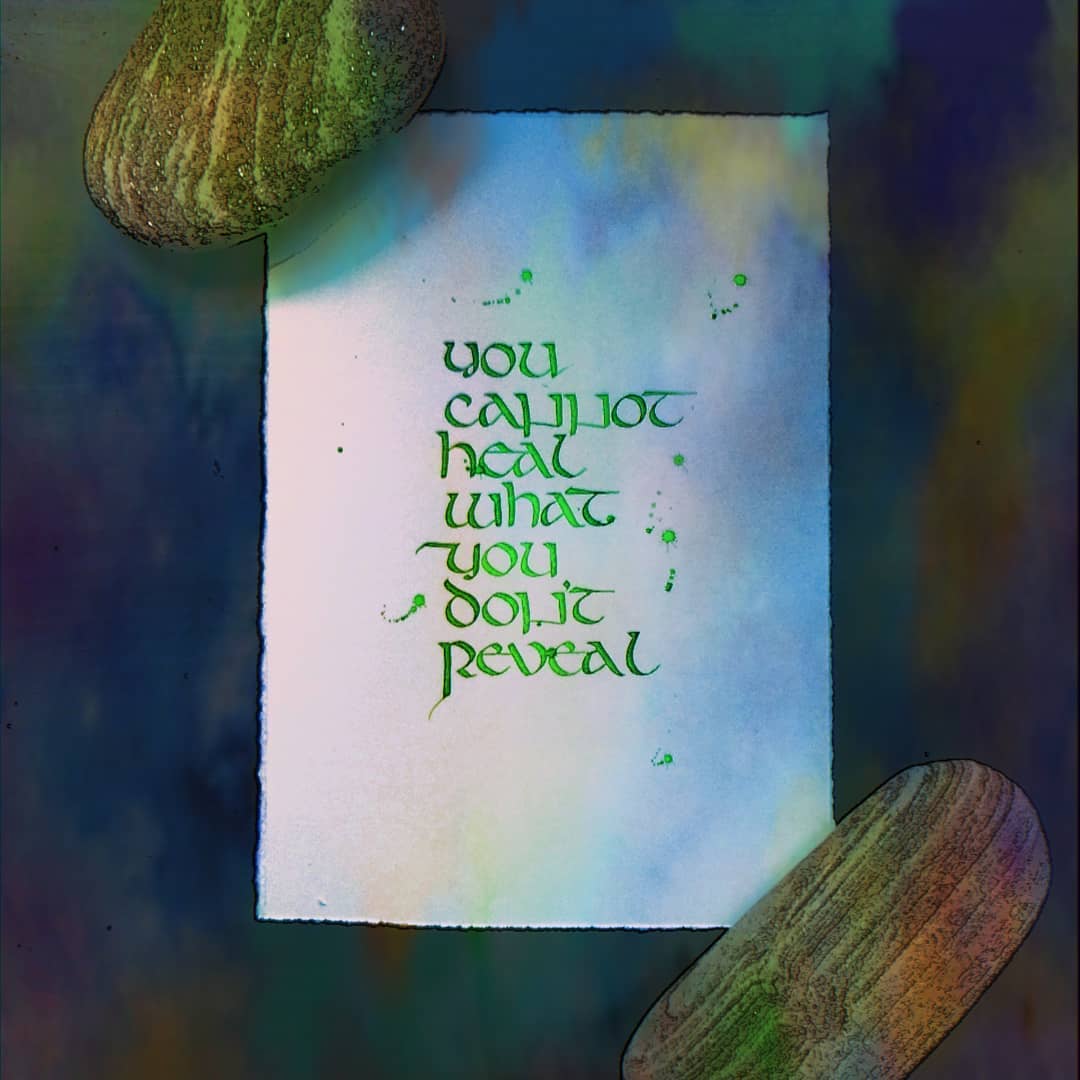 you
cannot
heal
what
you
don't
reveal